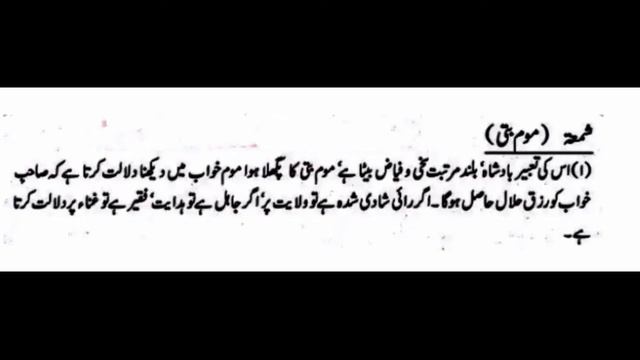 شمعۃ (موم بتی)
(۱) اس کی تعبیر بادشاہ' بلند مرتبت سخی و فیاض بیٹا ہے' موم بتی کا پگھلا ہوا موم خواب میں دیکھنا دلالت کرتا ہے کہ صاحب
خواب کو رزق حلال حاصل ہوگا۔ اگر رائی شادی شدہ ہے تو ولایت پر' اگر جاہل ہے تو ہدایت' فقیر ہے تو غناء پر دلالت کرتا
ہے۔